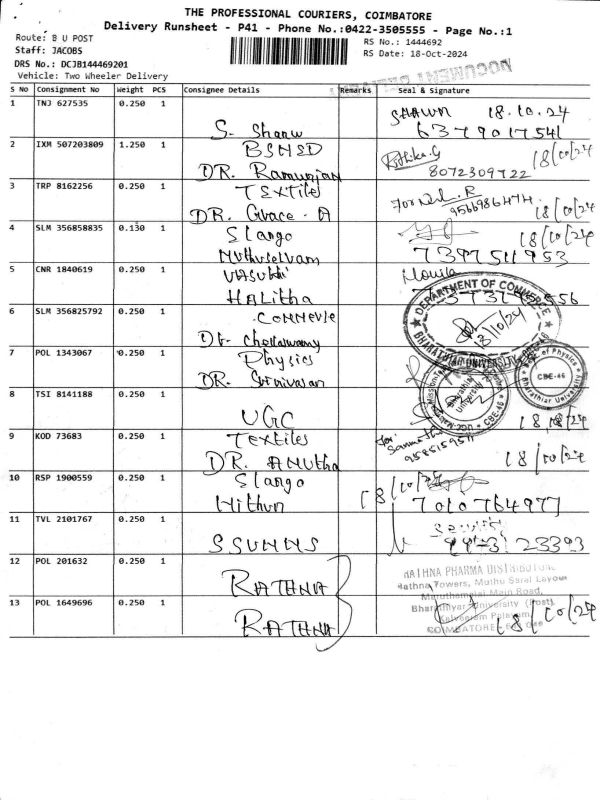 THE PROFESSIONAL COURIERS, COIMBATORE
Delivery Runsheet - P41 - Phone No.:0422-3505555 - Page No.:1
Route: B U POST
RS No.: 1444692
Staff: JACOBS
RS Date: 18-Oct-2024
DRS No.: DCJB144469201
Vehicle: Two Wheeler Delivery
S No Consignment No Weight PCS Consignee Details Remarks Seal & Signature
1 TNJ 627535 0.250 1 S. Sharw SHAWN 18.10.24
6379017541
2 IXM 507203809 1.250 1 BSMED
DR. Ramunjan 8072309722 18/10/24
3 TRP 8162256 0.250 1 Textiles
DR. Grace. A 9566986474 18/10/24
4 SLM 356858835 0.130 1 Slango 18/10/24
Muthuselvam 7397511953
5 CNR 1840619 0.250 1 Vasuki Mouila
Halitha
DEPARTMENT OF COMMERCE
BHARATHIAR UNIVERSITY
18/10/24
6 SLM 356825792 0.250 1 Commerce
Dr. Chellasamy
7 POL 1343067 0.250 1 Physics
DR. Srinivasan
Dept. of Physics
Bharathiar University
CBE-46
8 TSI 8141188 0.250 1 UGC 18.10.24
Bharathiar University
CBE-46
9 KOD 73683 0.250 1 Textiles
DR. Amutha 9585159511 18/10/24
10 RSP 1900559 0.250 1 Slango 18/10/24
Mithun 7010764977
11 TVL 2101767 0.250 1 SSUMMS
12 POL 201632 0.250 1 RATHNA
13 POL 1649696 0.250 1 RATHNA 18/10/24
RATHNA PHARMA DISTRIBUTORS
Rathna Towers, Muthu Saral Layout
Maruthamalai Main Road,
Bharathiyar University (Post),
Kalveeram Palayam,
COIMBATORE